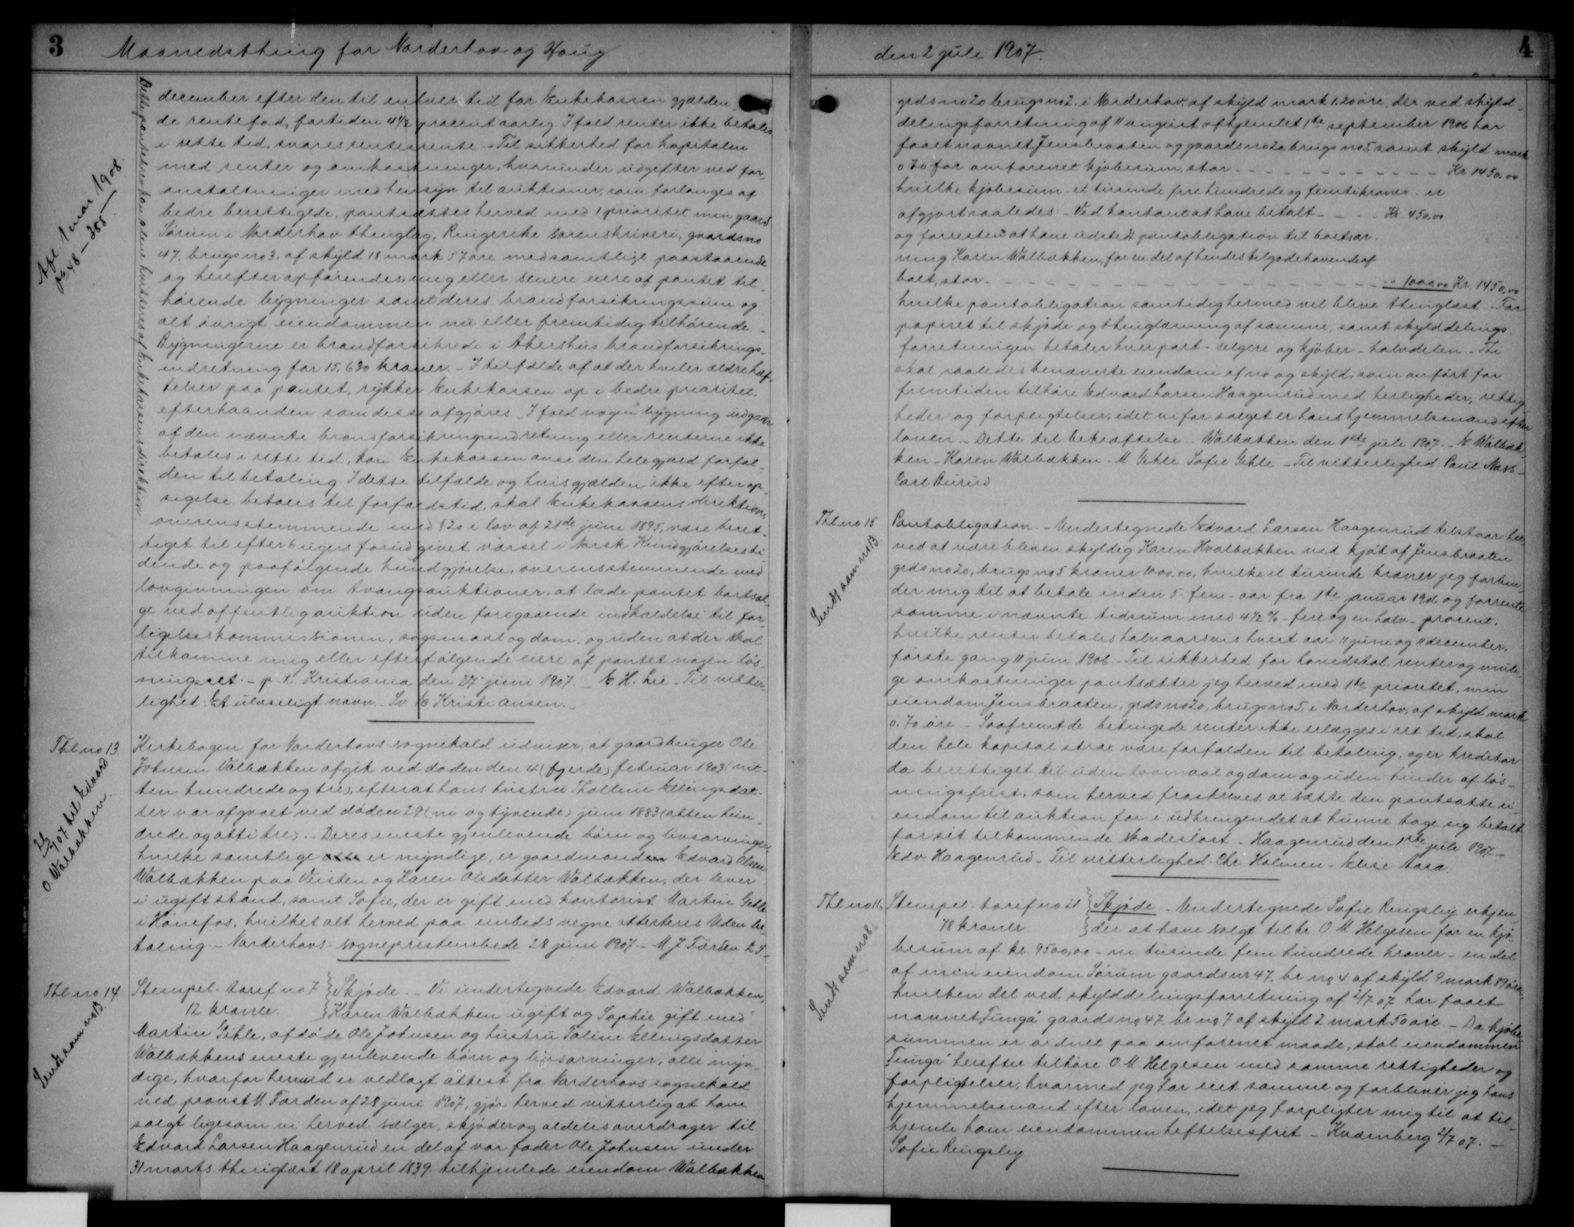 3 Maanedsthing for Norderhov og Haug
december efter den til enhver tid for Enkekassen gjælden
de rentefod, fortiden 4 1/2 procent aarlig. I fald renter ikke betales
i rette tid, svares rentesrente. Til sikkerhed for kapitalen
med renter og omkostninger, hvorunder udgifter ved for-
anstaltninger med hensyn til auktioner, som forlanges af
bedre berettigede, pantsættes herved med 1 prioritet min gaard
Sørum i Norderhov thinglag, Ringerike sorenskriveri, gaardsno
47, brugsno 3. af skyld 18 mark 57 øre med samtlige paastaaende
og herefter opførendes, mig eller senere eiere af pantet til-
hørende bygninger samt deres brandforsikringssum og
alt øvrigt eiendommen nu eller fremtidig tilhørende.
Bygningerne er brandforsikrede i Akershus brandforsikrings-
indretning for 15,630 kroner. I tilfælde af at der hviler ældre hæf-
telser paa pantet, rykker Enkekassen op i bedre prioritet,
efterhaanden som disse afgjøres. I fald nogen bygning udgaar
af den nævnte brandforsikringsindretning eller renterne ikke
betales i rette tid, kan Enkekassen anse den hele gjæld forfal-
den til betaling. I dette tilfælde og hvis gjælden ikke efter op-
sigelse betales til forfaldstid, skal Enkekassens direktion,
overensstemmende med § 20 i lov af 21de juni 1895, være beret-
tiget til efter 6 ugers forud givet varsel i Norsk Kundgjørelsesti-
dende og paafølgende kundgjørelse, overensstemmende med
lovgivningen om tvangsauktioner, at lade pantet bortsæl-
ge ved offentlig auktion uden foregaaende indkaldelse til for-
ligelseskommissionen, søgsmaal og dom, og uden at der skal
tilkomme mig eller efterfølgende eiere af pantet nogen løs-
ningsret. p. t. Kristiania den 27 juni 1907. E. H. Lie. Til vitter-
lighet: Et ulæseligt navn. Sv. E Kristiansen.
Dette pantebrev kan alene kvitteres af Enkekassens direktion
Afl 1 mai 1908
pb. 48 - 205
Thl no 13.
25/7 07 til Edvard
O Walbækken.
Kirkebogen for Norderhovs sognekald udviser, at gaardbruger Ole
Johnsen Walbækken afgik ved døden den 4 (fjerde) februar 1903 (nit-
ten hundrede og tre), efter at hans hustru Tholline Ellingsdat-
ter var afgaaet ved døden 29 (ni og tyvende) juni 1883 (atten hun-
drede og atti tre). Deres eneste gjenlevende børn og livsarvinger,
hvilke samtlige er myndige, er gaardmand Edvard Olsen
Walbækken paa Veisten og Karen Olsdatter Walbækken, der lever
i ugift stand, samt Sofie, der er gift med kontorist Martin Gehle
i Hønefos, hvilket alt herved paa embeds vegne attesteres. Uden be-
taling. Norderhovs sogneprestembede 28 juni 1907. M J Færden L.S.
Thl no 14
Lenksam no 13.
Stempel. tarif no 7
12 kroner.
Skjøde. Vi undertegnede Edvard Walbækken,
Karen Walbækken ugift og Sophie gift med
Martin Gehle, afdøde Ole Johnsen og hustru Toline Ellingsdatter
Walbækkens eneste gjenlevende børn og livsarvinger, alle myn-
dige, hvorfor herved er vedlagt attest fra Norderhovs sognekald
ved provst M. Færden af 28 juni 1907, gjør herved vitterlig at have
solgt ligesom vi herved sælger, skjøder og aldeles overdrager til
Edvard Larsen Haagenrud en del af vor fader Ole Johnsen under
31 marts thinglæst 18 april 1839 tilhjemlede eiendom Walbækken
den 2 juli 1907. 4
grdsno 20 brugsno 2. i Norderhov af skyld mark 1.20 øre, der ved skyld-
delingsforretning af 11 august afhjemlet 1ste september 1906 har
faaet navnet Jensbraaten og gaardsno 20 brugsno 5 samt skyld mark
0.70 for omforenet kjøbesum, stor Kr. 1450.00
hvilke kjøbesum et tusinde fire hundrede og femti kroner er
afgjort saaledes. Ved kontant at have betalt Kr 450.00
og forresten at have udstedt pantobligation til bortsæ-
ning Karen Walbækken, for en del af hendes tilgodehavende af
boet, stor 1000.00 Kr. 1450.00
hvilke pantobligation samtidig hermed vil blive thinglæst. For
papiret til skjøde og thinglæsning af samme, samt skylddelings-
forretningen betaler hver part - sælgere og kjøber - halvdelen. Thi
skal saaledes benævnte eiendom af no og skyld, som anført for
fremtiden tilhøre Edvard Larsen Haagenrud med herligheder, rettig-
heder og forpligtelser, idet vi for salget er hans hjemmelsmænd efter
loven. Dette til bekræftelse. Walbækken den 1ste juli 1907. E Walbæk-
ken. Karen Walbækken. M Gehle Sofie Gehle. Til vitterlighed Paul Næss.
Carl Burud
Thl no 15
Lenksam no 13
Pantobligation. Undertegnede Edvard Larsen Haagenrud tilstaar her-
ved at være bleven skyldig Karen Hvalbækken ved kjøb af Jensbraaten
grdsno 20, brugsno 5 kroner 1000.00, hvilke et tusinde kroner jeg forbin-
der mig til at betale inden 5 - fem - aar fra 1ste januar 1906 og forrente
samme i nævnte tidsrum med 4 1/2 % - fire og en halv - procent,
hvilke renter betales halvaarsvis hvert aar 11 juni og 11 december,
første gang 11 juni 1906. Til sikkerhed for hovedstol, renter og muli-
ge omkostninger pantsætter jeg herved med 1ste prioritet, min
eiendom Jensbraaten, grdsno 20, brugsno 5, i Norderhov, af skyld mark
0.70 øre. Saafremt de betingede renter ikke erlægges i ret tid, skal
den hele kapital strax være forfalden til betaling, og er kreditor
da berettiget til uden lovmaal og dom og uden hinder af løs-
ningsfrist, som herved fraskrives, at sætte den pantsatte ei-
endom til auktion for i udbringendet at kunne tage sig betalt
for sit tilkommende skadesløst. Haagenrud den 1ste juli 1907.
Edv. Haagenrud. Til vitterlighed: Chr Holmen. Elise Aasa.
Thl no 16
Lenksam no 8
Stempel. tarif no 11
78 kroner
Skjøde. Undertegnede Sofie Ringsby erkjen-
der at have solgt til hr. O M Helgesen for en kjø-
besum af kr. 9500,00 - ni tusinde fem hundrede kroner - en del
af min eiendom Sørum gaardsnr 47. br. nr 4 af skyld 9 mark 89 øre,
hvilken del ved skylddelingsforretning af 2/7 07 har faaet
navnet "Tunga" gaardsnr 47 br. nr 7 af skyld 2 mark 50 øre. Da kjøbe-
summen er ordnet paa omforenet maade, skal eiendommen
"Tunga" herefter tilhøre O M Helgesen med samme rettigheder og
forpligtelser, hvormed jeg har eiet samme og forbliver jeg hans
hjemmelsmand efter loven, idet jeg forpligter mig til at til-
hjemle ham eiendommen heftelsesfrit. Kvernberg 2/7 07.
Sofie Ringsby